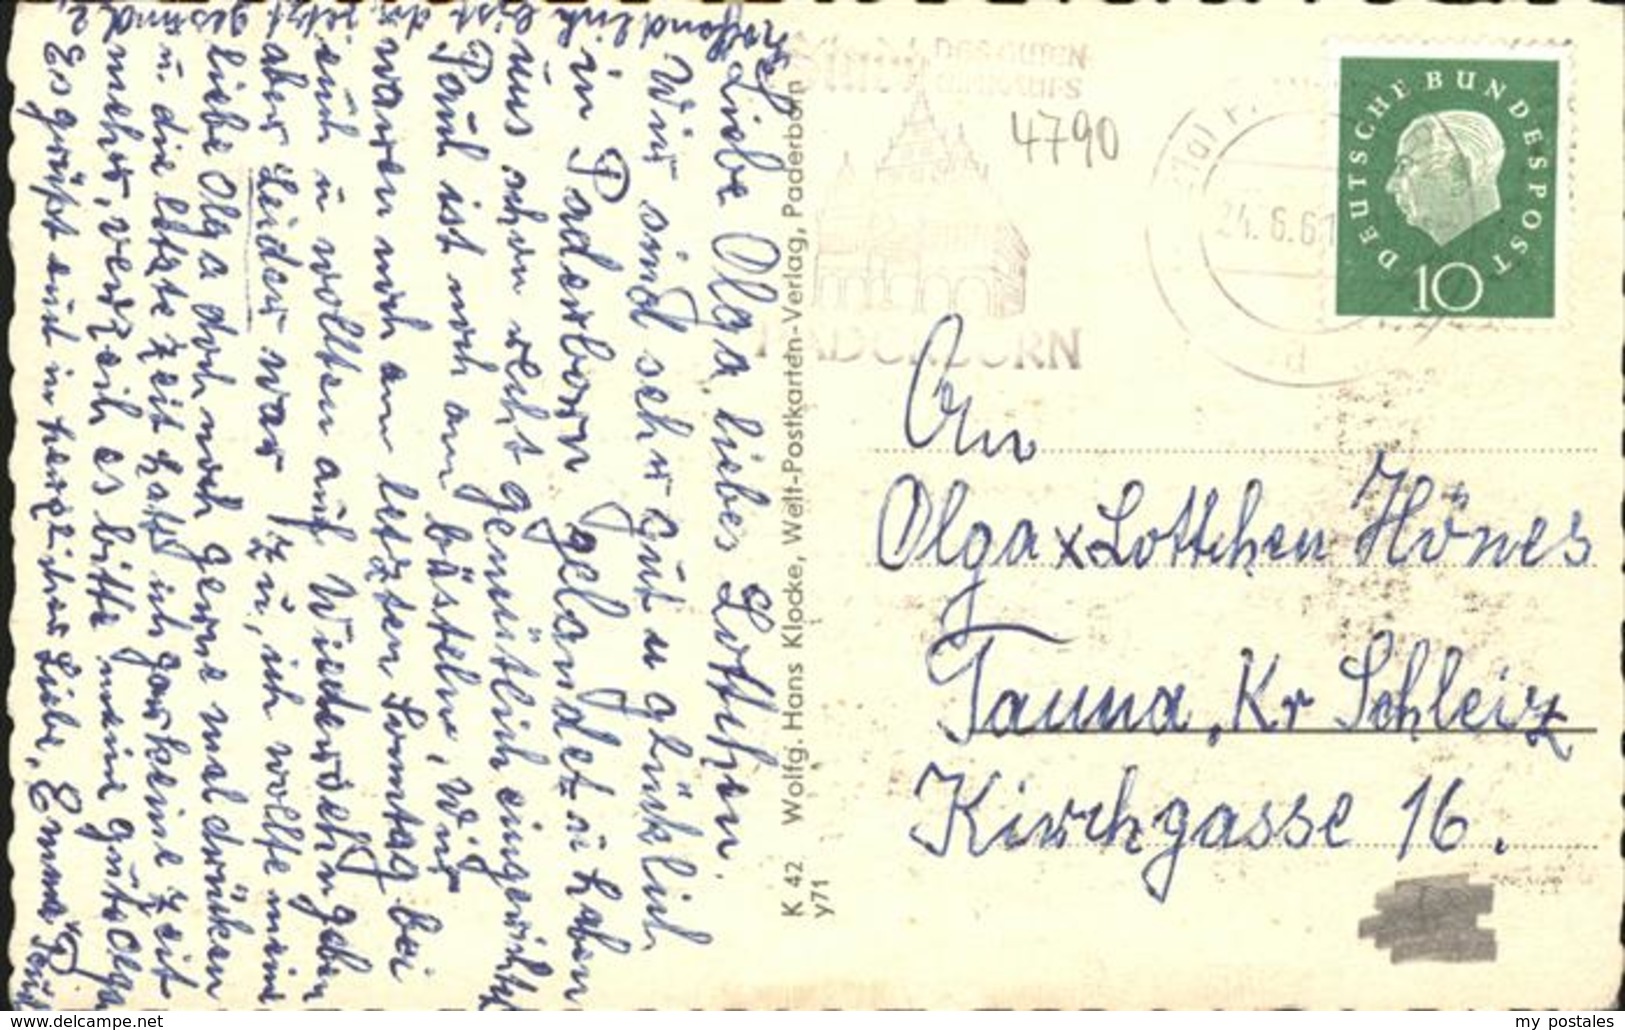 Liebe Olga, liebes Lottchen.
Wir sind sehr gut u glücklich
in Paderborn gelandet u haben
uns schon recht gemütlich eingerichtet
Paul ist noch am bästeln, Wir
waren noch am letzten Sonntag bei
euch u wollten auf Wiedersehn geben
aber Leider war zu, ich wollte meine
liebe Olga doch noch gerne mal drücken
u. die letzte Zeit hatt ich gar keine Zeit
mehr, verzeih es bitte meine gute Olga
Es grüßt euch in herzlicher Liebe, Emma u Paul
K 42 Wolfg. Hans Klocke, Welt-Postkarten-Verlag, Paderborn
y71
DES GUTEN
EINKAUFS
PADERBORN
4790
24.6.61
DEUTSCHE BUNDESPOST
10
An
Olga x Lottchen Hönes
Tanna, Kr Schleiz
Kirchgasse 16.
www.delcampe.net
my postales